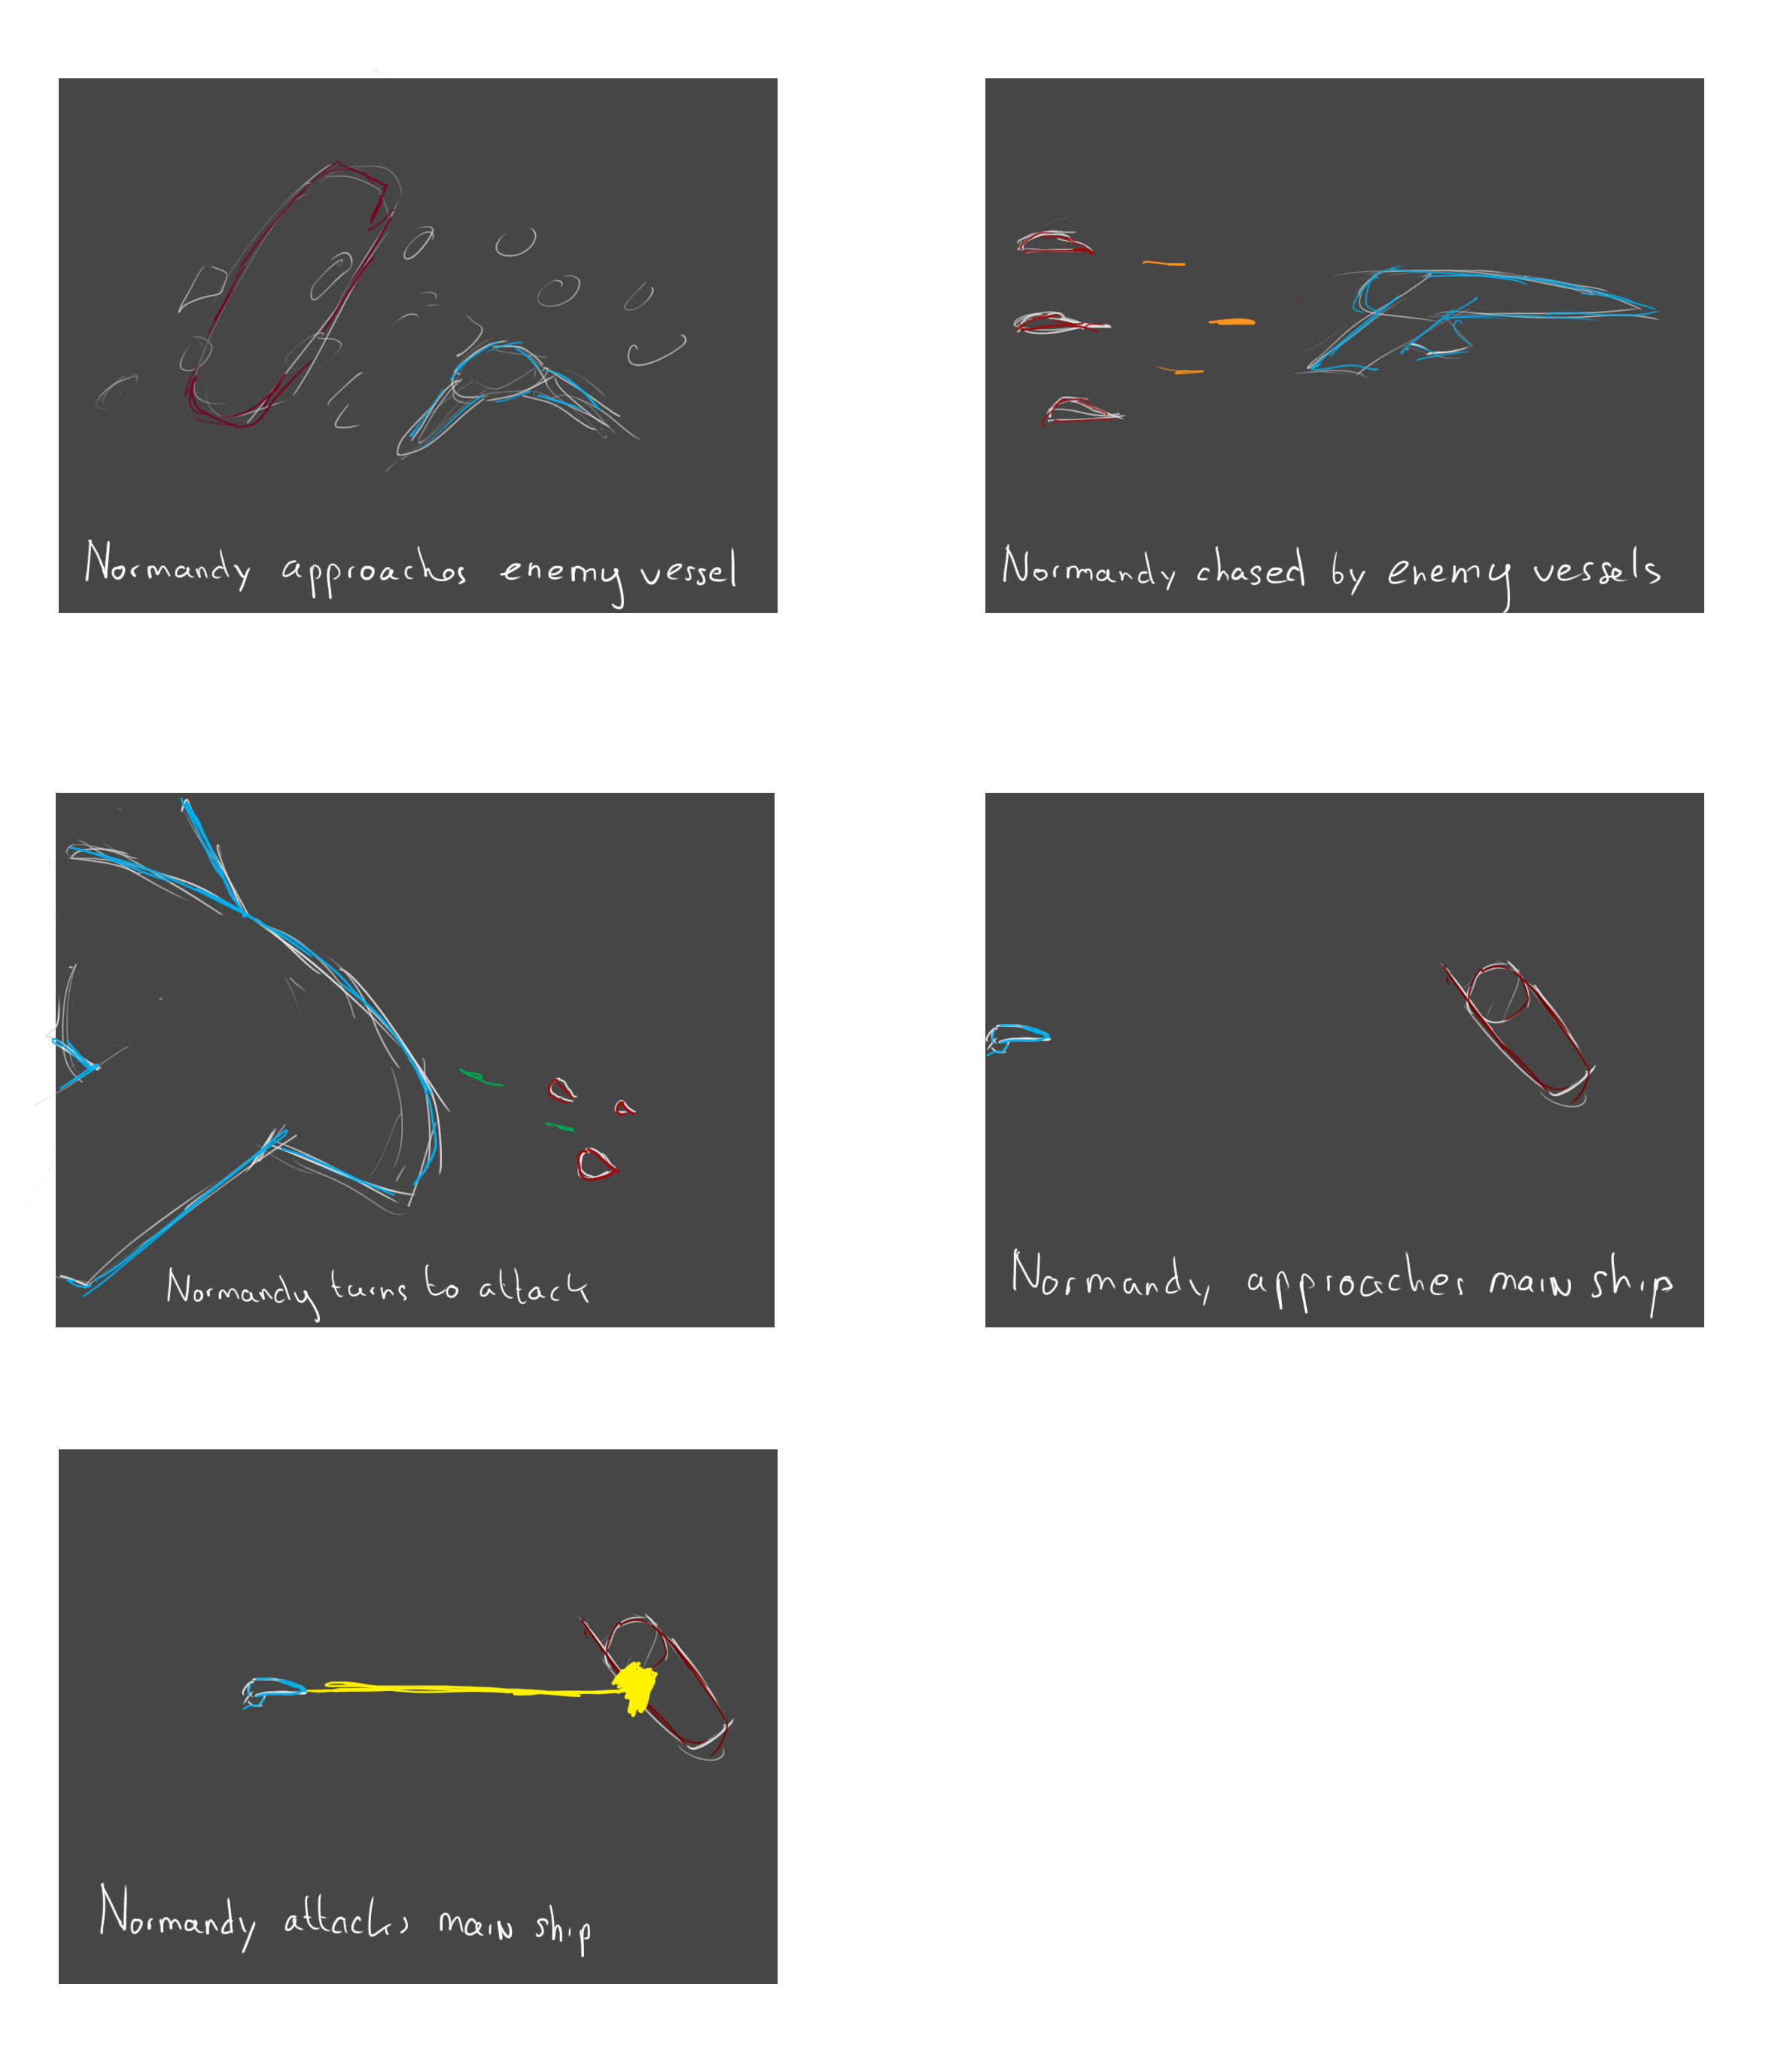 Normandy approaches enemy vessel
Normandy chased by enemy vessels
Normandy turns to attack
Normandy approaches main ship
Normandy attacks main ship